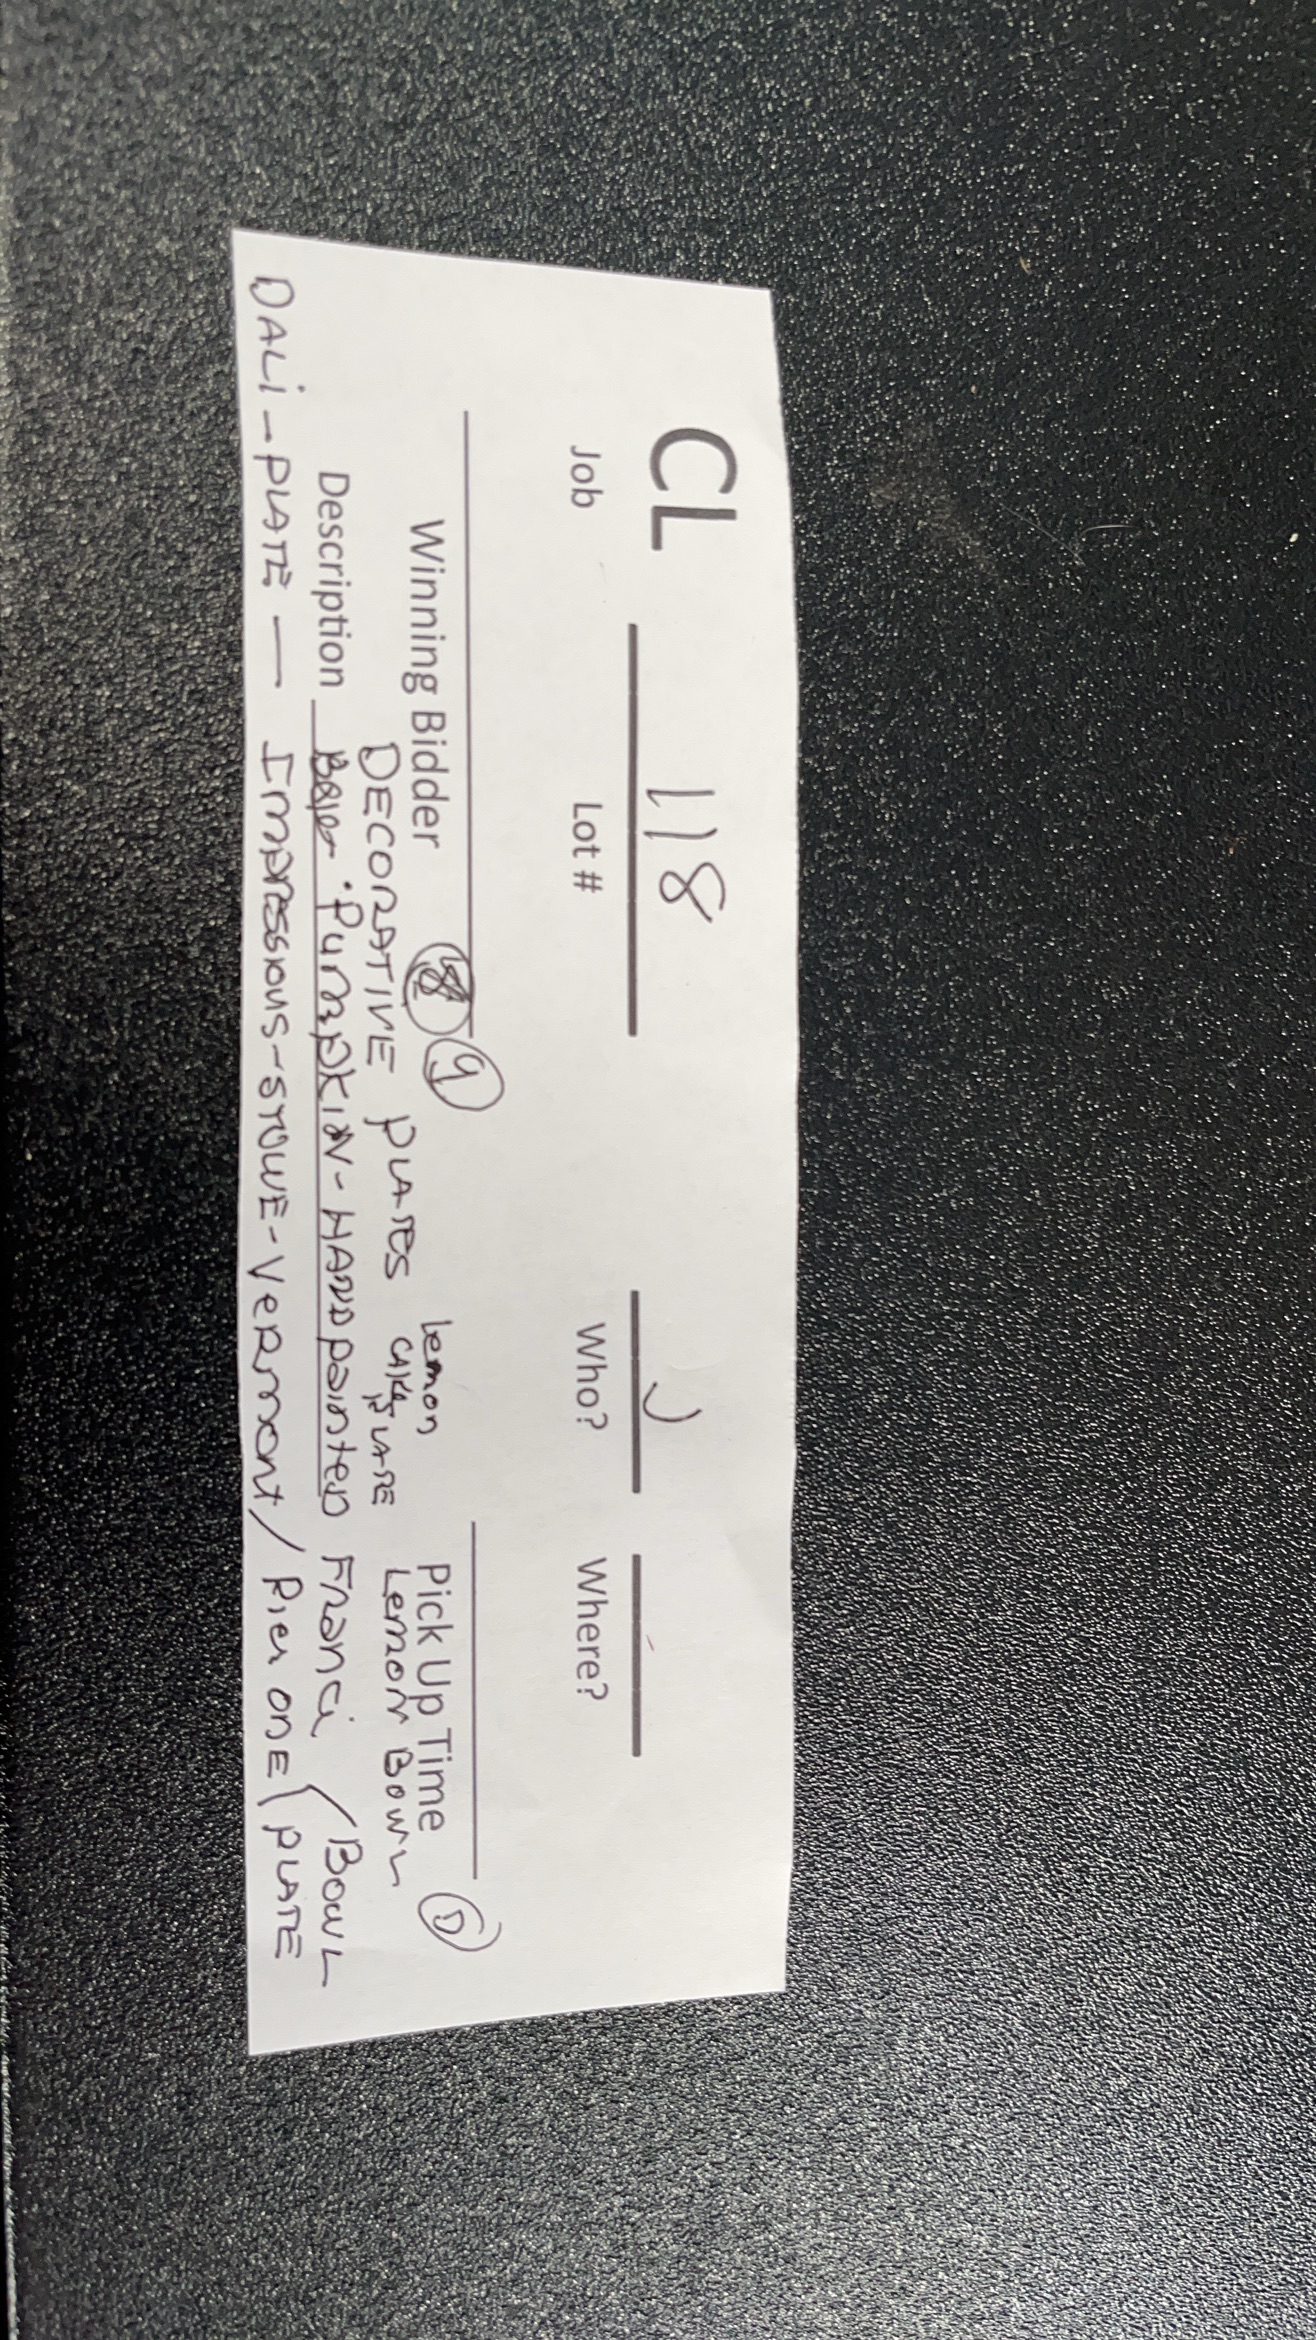 CL 118
Job Lot # Who? Where?
Winning Bidder 9 Pick Up Time
Lemon
DECORATIVE PLATES CAKE PLATE Lemon Bowl
Description Pumpkin-HANDPainted Franci / Bowl
DALi - PLATE — Impressions-STOWE-Vermont / Pier ONE / PLATE